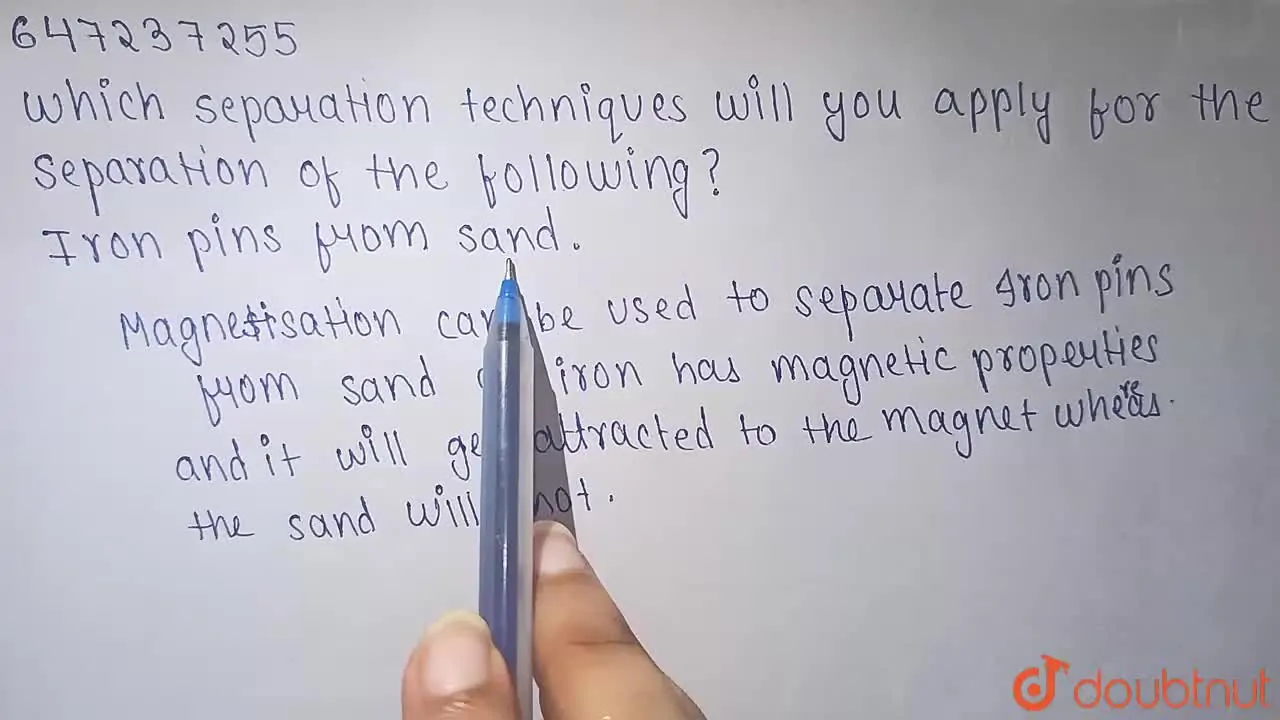 647237255
Which separation techniques will you apply for the
separation of the following?
Iron pins from sand.
Magnetisation can be used to separate Iron pins
from sand iron has magnetic properties
and it will get attracted to the magnet whereas.
the sand will not.
doubtnut